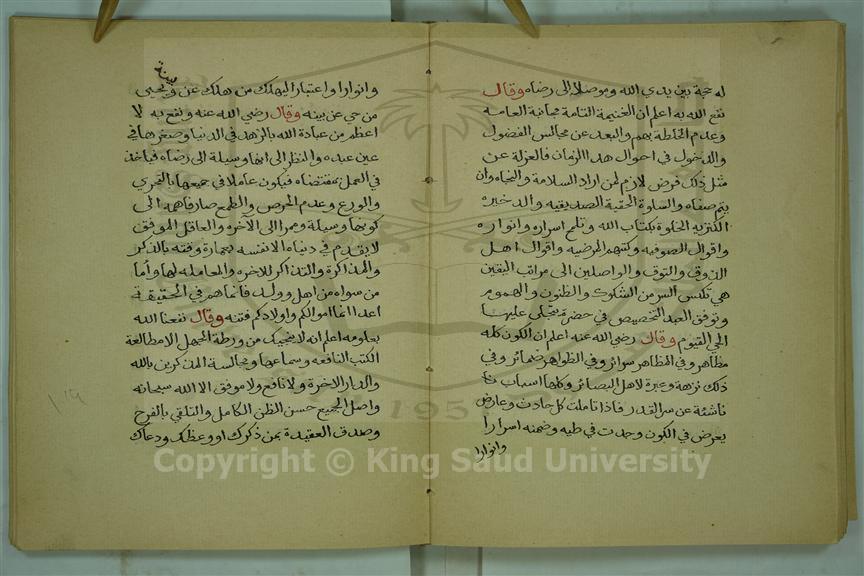 له حجة بين يدي الله وموصلا الى رضاه وقال
نفع الله به اعلم ان الغنيمة التامة مجانبة العامه
وعدم الخلطة بهم والبعد عن مجالس الفضول
والدخول في احوال هذا الزمان فالعزلة عن
مثل ذلك فرض لازم لمن اراد السلامة والنجاه وان
يتم صفاه والسلوة الحقية الصديقيه والذخيره
الكنزيه الخلوة بكتاب الله وتلمح اسراره وانواره
واقوال الصوفيه وكتبهم المرضيه واقوال اهل
الذوق والتوق والواصلين الى مراتب اليقين
هي تكنس السر من الشكوك والظنون والهموم
وتوقف العبد التخصيص في حضرة يتجلى عليها
الحي القيوم وقال رضي الله عنه اعلم ان الكون كله
مظاهر وفي المظاهر سرائر وفي الظواهر ضمائر وفي
ذلك نزهة وعبرة لاهل البصائر وكلها اسباب نا
ناشئة عن سر القدر فاذا تاملت كل حادث وعارض
يعرض في الكون وجدت في طيه وضمنه اسرارا
وانوارا
وانوارا واعتبارا ليهلك من هلك عن بينة ويحيى
من حي عن بينه وقال رضي الله عنه ونفع به لا
اعظم من عبادة الله بالزهد في الدنيا وصغرها في
عين عبده والنظر الى انها وسيلة الى رضاه فياخذ
في العمل بمقتضاه فيكون عاملا في جميعها بالتحري
والورع وعدم الحرص والطمع صارفا همه الى
كونها وسيلة وممرا الى الآخره والعاقل الموفق
لا يقدم في دنياه الا نفسه بعمارة وقته بالذكر
والمذاكرة والتذاكر للاخره والمعامله لها واما
من سواه من اهل وولد فانما هم في الحقيقة
اعدا انما اموالكم واولادكم فتنه وقال نفعنا الله
بعلومه اعلم انه لا ينجيك من ورطة الجهل الا مطالعة
الكتب النافعه وسماعها ومجالسة المذكرين بالله
والدار الاخرة ولا نافع ولا موفق الا الله سبحانه
واصل الجميع حسن الظن الكامل والتلقي بالفرح
وصدق العقيدة بمن ذكرك او وعظك ودعاك
Copyright © King Saud University
1957